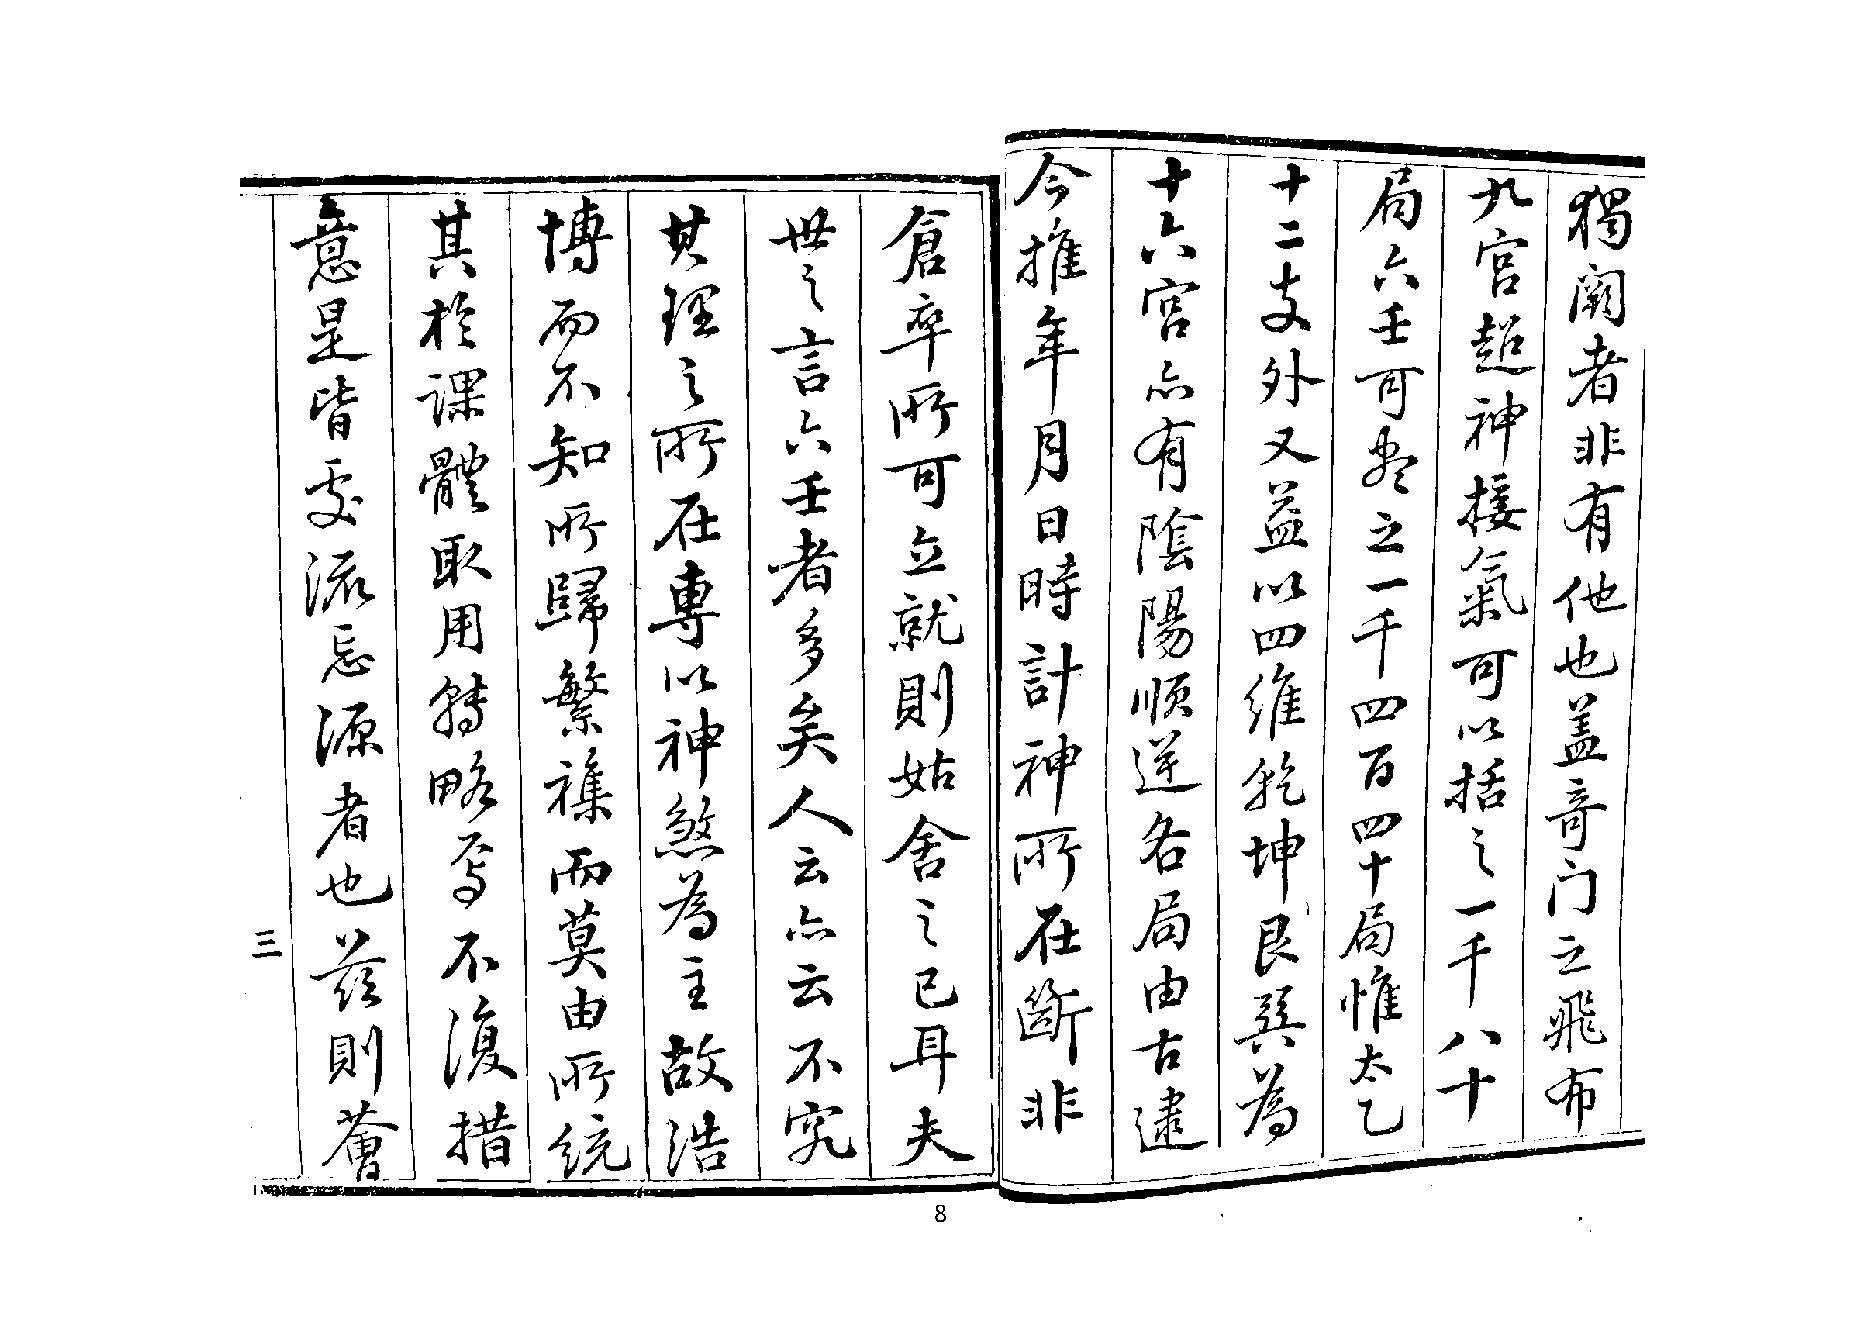 獨闕者非有他也盖竒门之飛布
九宮超神接氣可以括之一千八十
局六壬可盡之一千四百四十局惟太乙
十二支外又益以四維乾坤艮巽為
十六宮亦有陰陽順逆各局由古逮
今推年月日時計神所在斷非
倉卒所可立就則姑舍之已耳夫
世之言六壬者多矣人云亦云不究
其理之所在專以神煞為主故浩
博而不知所歸繁襍而莫由所统
其於課體取用轉略焉不復措
意是皆委流忘源者也兹則薈
三
8